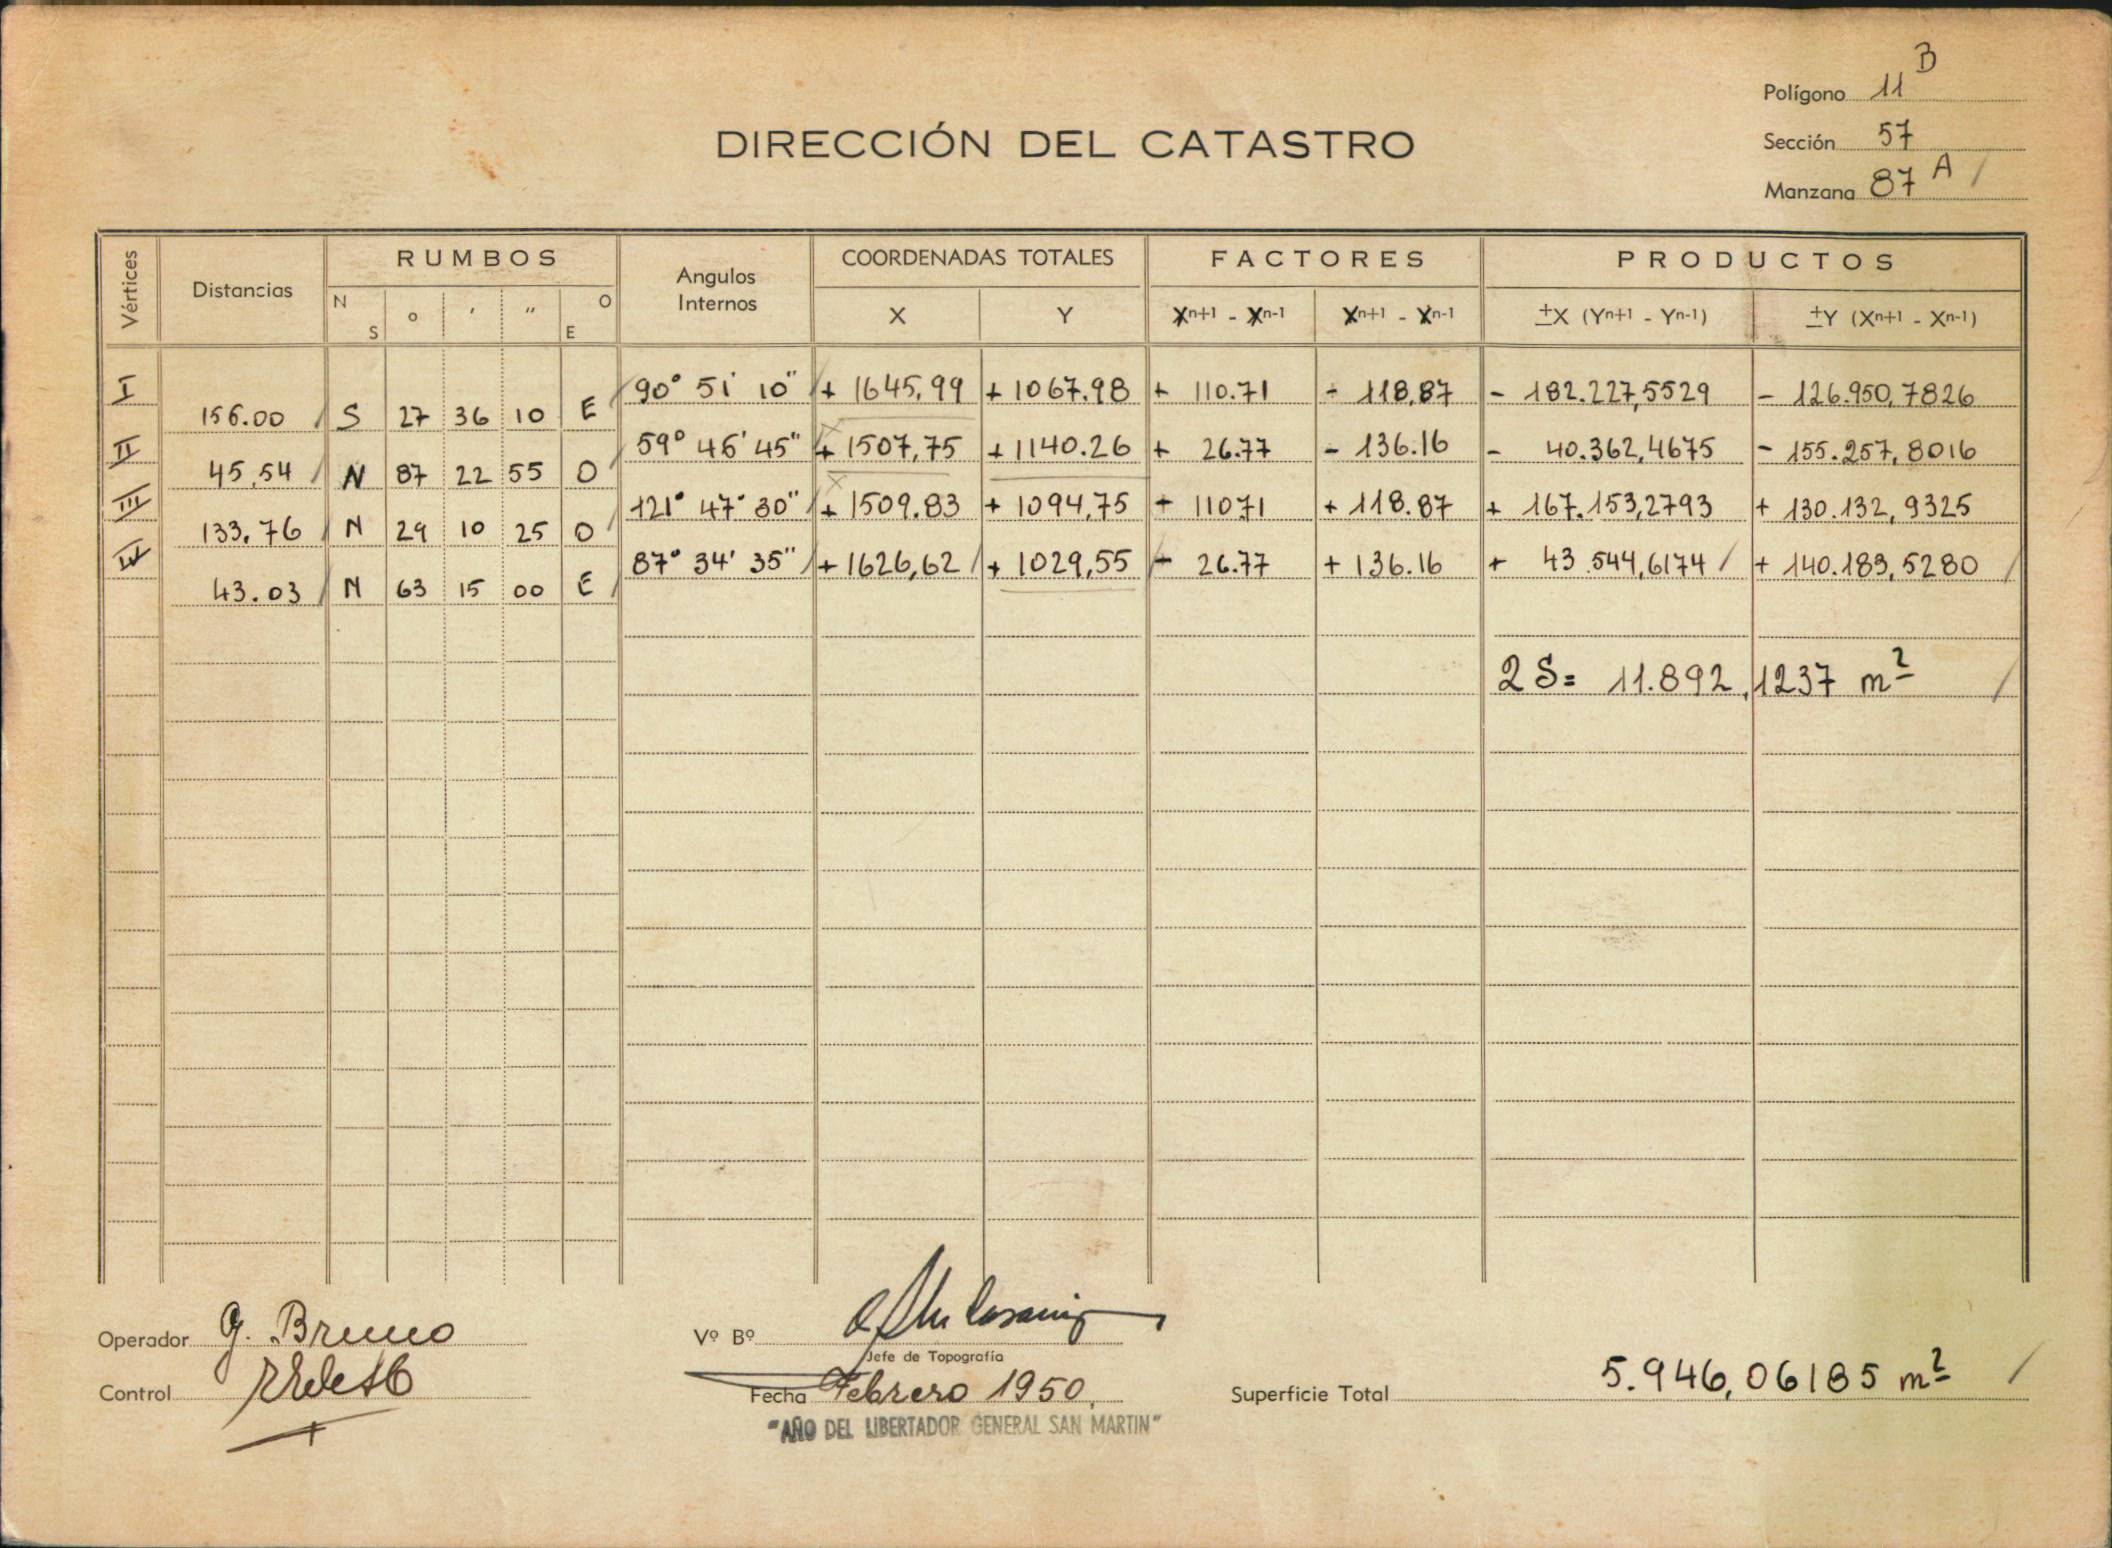 Polígono 11 B
DIRECCIÓN DEL CATASTRO
Sección 57
Manzana 87 A /
Vértices Distancias RUMBOS Angulos Internos COORDENADAS TOTALES FACTORES PRODUCTOS
N S ° ' " O E X Y Xn+1 - Xn-1 Xn+1 - Xn-1 ±X (Yn+1 - Yn-1) ±Y (Xn+1 - Xn-1)
I 90° 51' 10" + 1645,99 + 1067.98 + 110.71 - 118,87 - 182.227,5529 - 126.950,7826
156.00 S 27 36 10 E
II 59° 46' 45" + 1507,75 + 1140.26 + 26.77 - 136.16 - 40.362,4675 - 155.257,8016
45,54 N 87 22 55 O
III 121° 47' 30" + 1509.83 + 1094,75 - 11071 + 118.87 + 167.153,2793 + 130.132,9325
133,76 N 29 10 25 O
IV 87° 34' 35" + 1626,62 + 1029,55 - 26.77 + 136.16 + 43.544,6174 + 140.183,5280
43.03 N 63 15 00 E
2 S= 11.892,1237 m²
Operador G. Bruno
Vº Bº
Jefe de Topografía
Control
Fecha Febrero 1950,
Superficie Total 5.946,06185 m²
"AÑO DEL LIBERTADOR GENERAL SAN MARTIN"